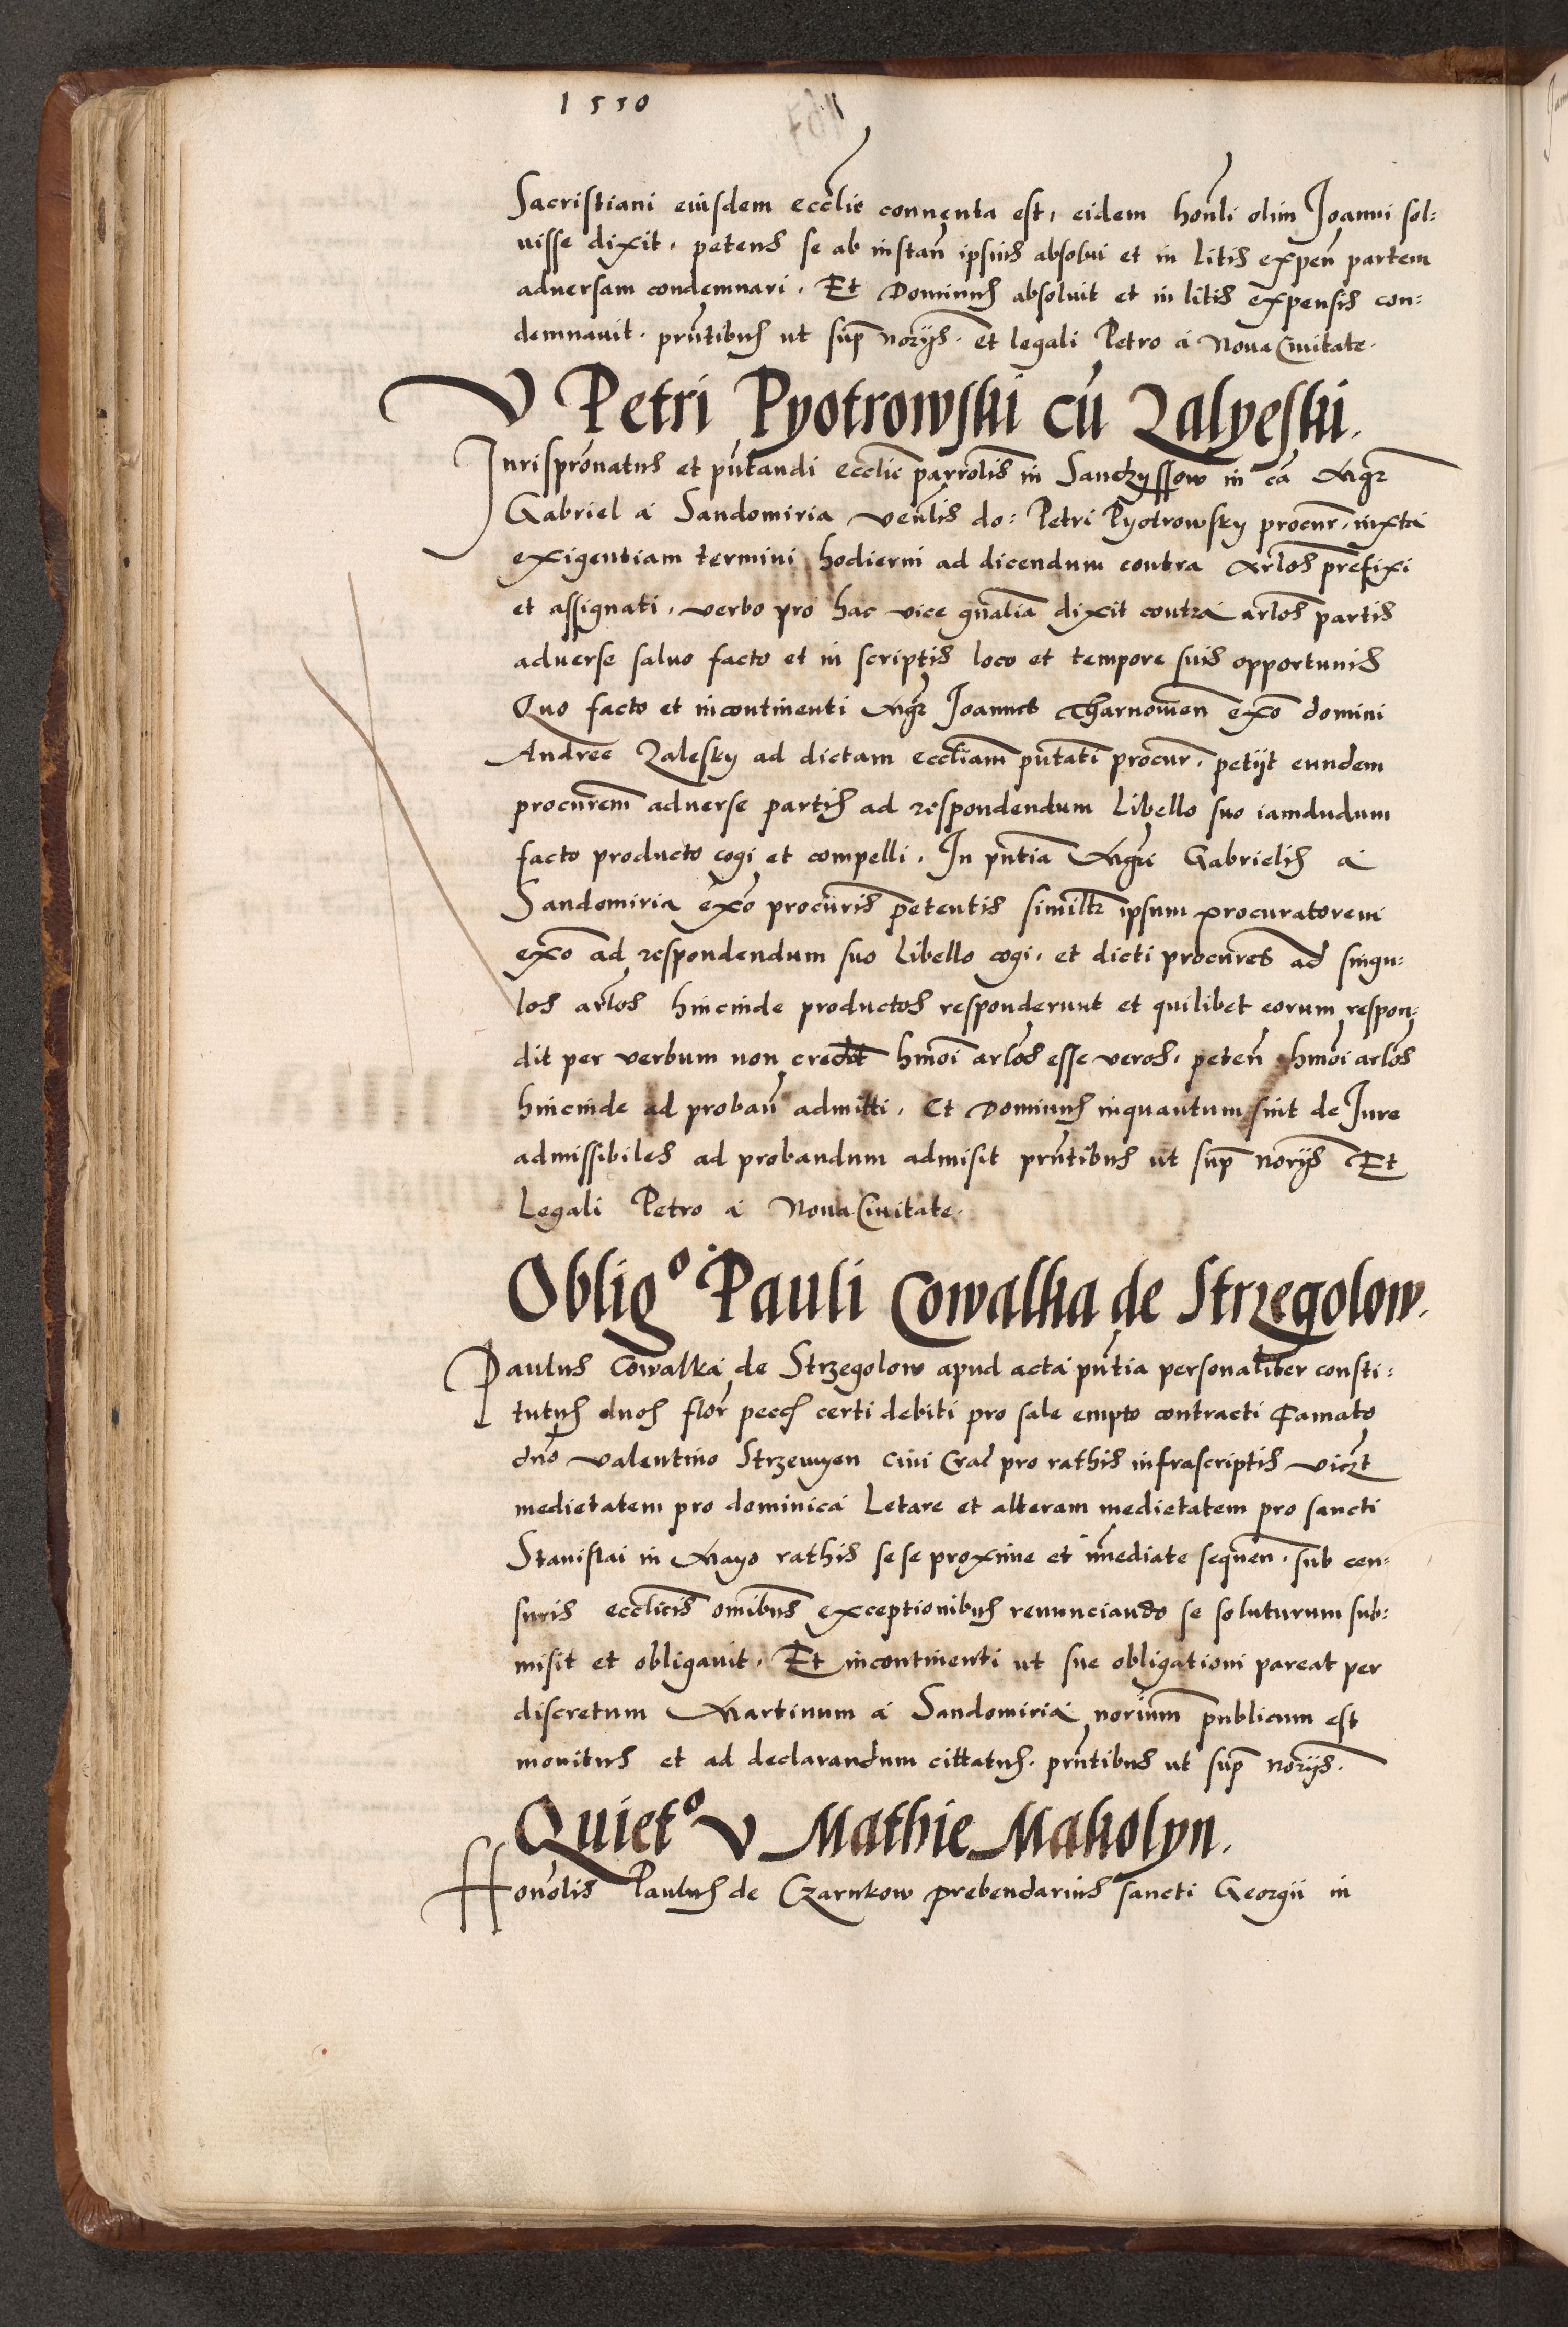 1550
Sacristiani eiusdem ecclie conuenta est, eidem honli olim Joanni sol=
uisse dixit, petens se ab instan ipsius absolui et in litis expen partem
aduersam condemnari. Et Dominus absoluit et in litis expensis con=
demnauit. pruntibus ut sup noriis. et legali Petro a Noua Ciuitate.
V Petri Pyotrowski cu Zalyeski.
Jurispronatus et puntandi ecclie parrolis in Sanczyssow in ca Mgr
Gabriel a Sandomiria venlis do: Petri Pyotrowsky procur, iuxta
exigentiam termini hodierni ad dicendum contra arlos prefixi
et assignati, verbo pro hac vice gnalia dixit contra arlos partis
aduerse saluo facto et in scriptis loco et tempore suis opportunis
Quo facto et incontinenti Mgr Joannes Tharnowen exo domini
Andree Zalesky ad dictam eccliam puntati procur. petiit eundem
procurem aduerse partis ad respondendum Libello suo iamdudum
facto producto cogi et compelli. In pntia Mgri Gabrielis a
Sandomiria exo procuris petentis similtr ipsum procuratorem
exo ad respondendum suo Libello cogi. et dicti procures ad singu=
los arlos hincinde productos responderunt et quilibet eorum respon=
dit per verbum non credit hmoi arlos esse veros. peten hmoi arlos
hincinde ad proban admitti. Et Dominus inquantum sint de Jure
admissibiles ad probandum admisit pruntibus ut sup noriis Et
Legali Petro a Noua Ciuitate.
Obligo Pauli Cowalka de Strzegolow.
Paulus Cowalka de Strzegolow apud acta puntia personaliter consti=
tutus duos flor pecc certi debiti pro sale empto contracti Famato
dno Valentino Strzemyen ciui Crac pro rathis infrascriptis viczt
medietatem pro dominica Letare et alteram medietatem pro sancti
Stanislai in Mayo rathis sese proxime et immediate sequen. sub cen=
suris ecclicis omibus exceptionibus renunciando se soluturum sub=
misit et obligauit. Et incontinenti ut sue obligationi pareat per
discretum Martinum a Sandomiria norium publicum est
monitus et ad declarandum cittatus. pruntibus ut sup noriis.
Quieto V Mathie Makolyn.
Honolis Paulus de Czarnkow prebendarius sancti Georgii in